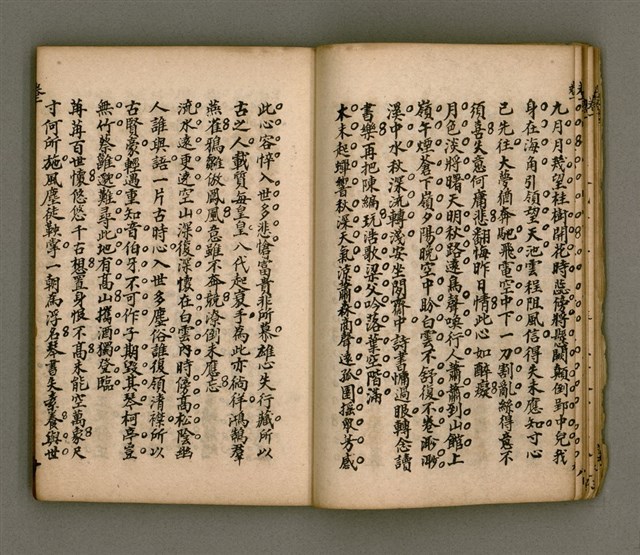 九月月幾望桂樹開花時蕊榜將與鬭顛倒郢中兒我
身在海角引領望天池雲程阻風信得失未應知寸心
已先往大夢猶奔馳飛電空中下一刀割亂絲得意不
須喜失意何庸悲翻悔昨日情此心如醉癡
月色淡將曙天明秋路遠馬聲喚行人蕭蕭到山館上
嶺午煙蒼下嶺夕陽晩空中盼白雲不舒復不卷渺渺
溪中水秋深流轉淺安坐閒齋中詩書慵過眼轉念讀
書樂再把陳編玩浩歌梁父吟落葉空階滿
木末起蟬響秋深天氣涼蕭森商聲遠孤圃摧衆芳感
此心容悴入世多悲愴富貴非所慕雄心失行藏所以
古之人載質每皇皇八代起衰手為此亦徜徉鴻鵠羣
燕雀鴉雛傲鳳凰意雖不奔競潦倒未應忘
流水遠更遶空山深復深懷在白雲內時傍高松陰幽
人誰與語一片古時心入世多塵俗誰復領清襟所以
古賢豪輕過重知音伯牙不可作子期毀其琴柯亭豈
無竹蔡雖邈難尋此地有高山攜酒獨登臨
苒苒百世懷悠悠千古想置身恨不高未能空萬象尺
寸何所施風塵徒鞅掌一朝萬浮名琴書失素養與世